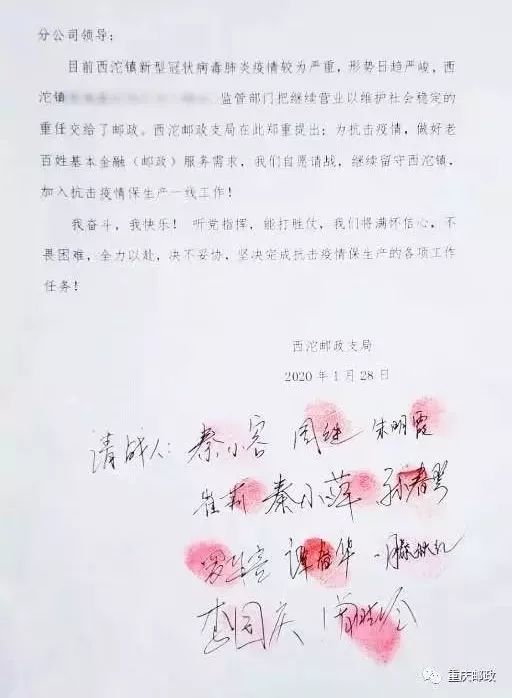 分公司领导：
目前西沱镇新型冠状病毒肺炎疫情较为严重，形势日趋严峻，西
沱镇 监管部门把继续营业以维护社会稳定的
重任交给了邮政。西沱邮政支局在此郑重提出：为抗击疫情，做好老
百姓基本金融（邮政）服务需求，我们自愿请战，继续留守西沱镇，
加入抗击疫情保生产一线工作！
我奋斗，我快乐！ 听党指挥，能打胜仗，我们将满怀信心，不
畏困难，全力以赴，决不妥协，坚决完成抗击疫情保生产的各项工作
任务！
西沱邮政支局
2020 年 1 月 28 日
请战人： 秦小容 周继 朱明霞
崔莉 秦小萍
谭 华
李国庆
重庆邮政